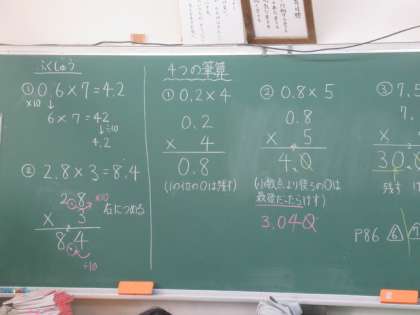 ふくしゅう
① 0.6×7=4.2
×10↓
6×7=42
↓÷10
4.2
② 2.8×3=8.4
2.8 ×10
× 3 右につめる
8.4
÷10
4つの筆算
① 0.2×4
0.2
× 4
0.8
(1の位の0は残す)
② 0.8×5
0.8
× 5
4.0
(小数点より後ろの0は
最後だったらけす)
3.040
③ 7.5
7.
×
30.0
残す
P86 △6 △7